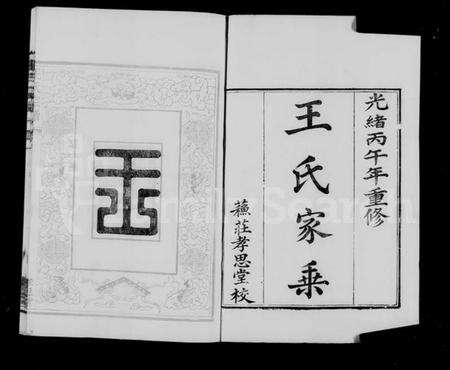 光緒丙午年重修
王氏家乘
蘓莊孝思堂校
FamilySearch